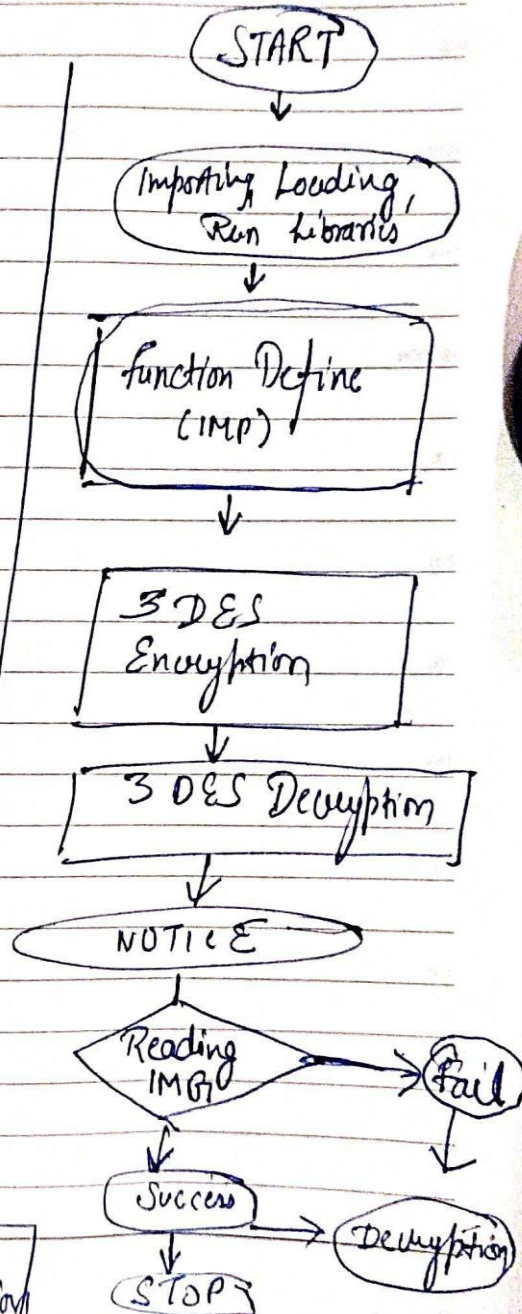 START
Importing, Loading,
Run Libraries
function Define
(IMP)
3 DES
Encryption
3 DES Decryption
NOTICE
Reading
IMG
Fail
Success
Decryption
STOP